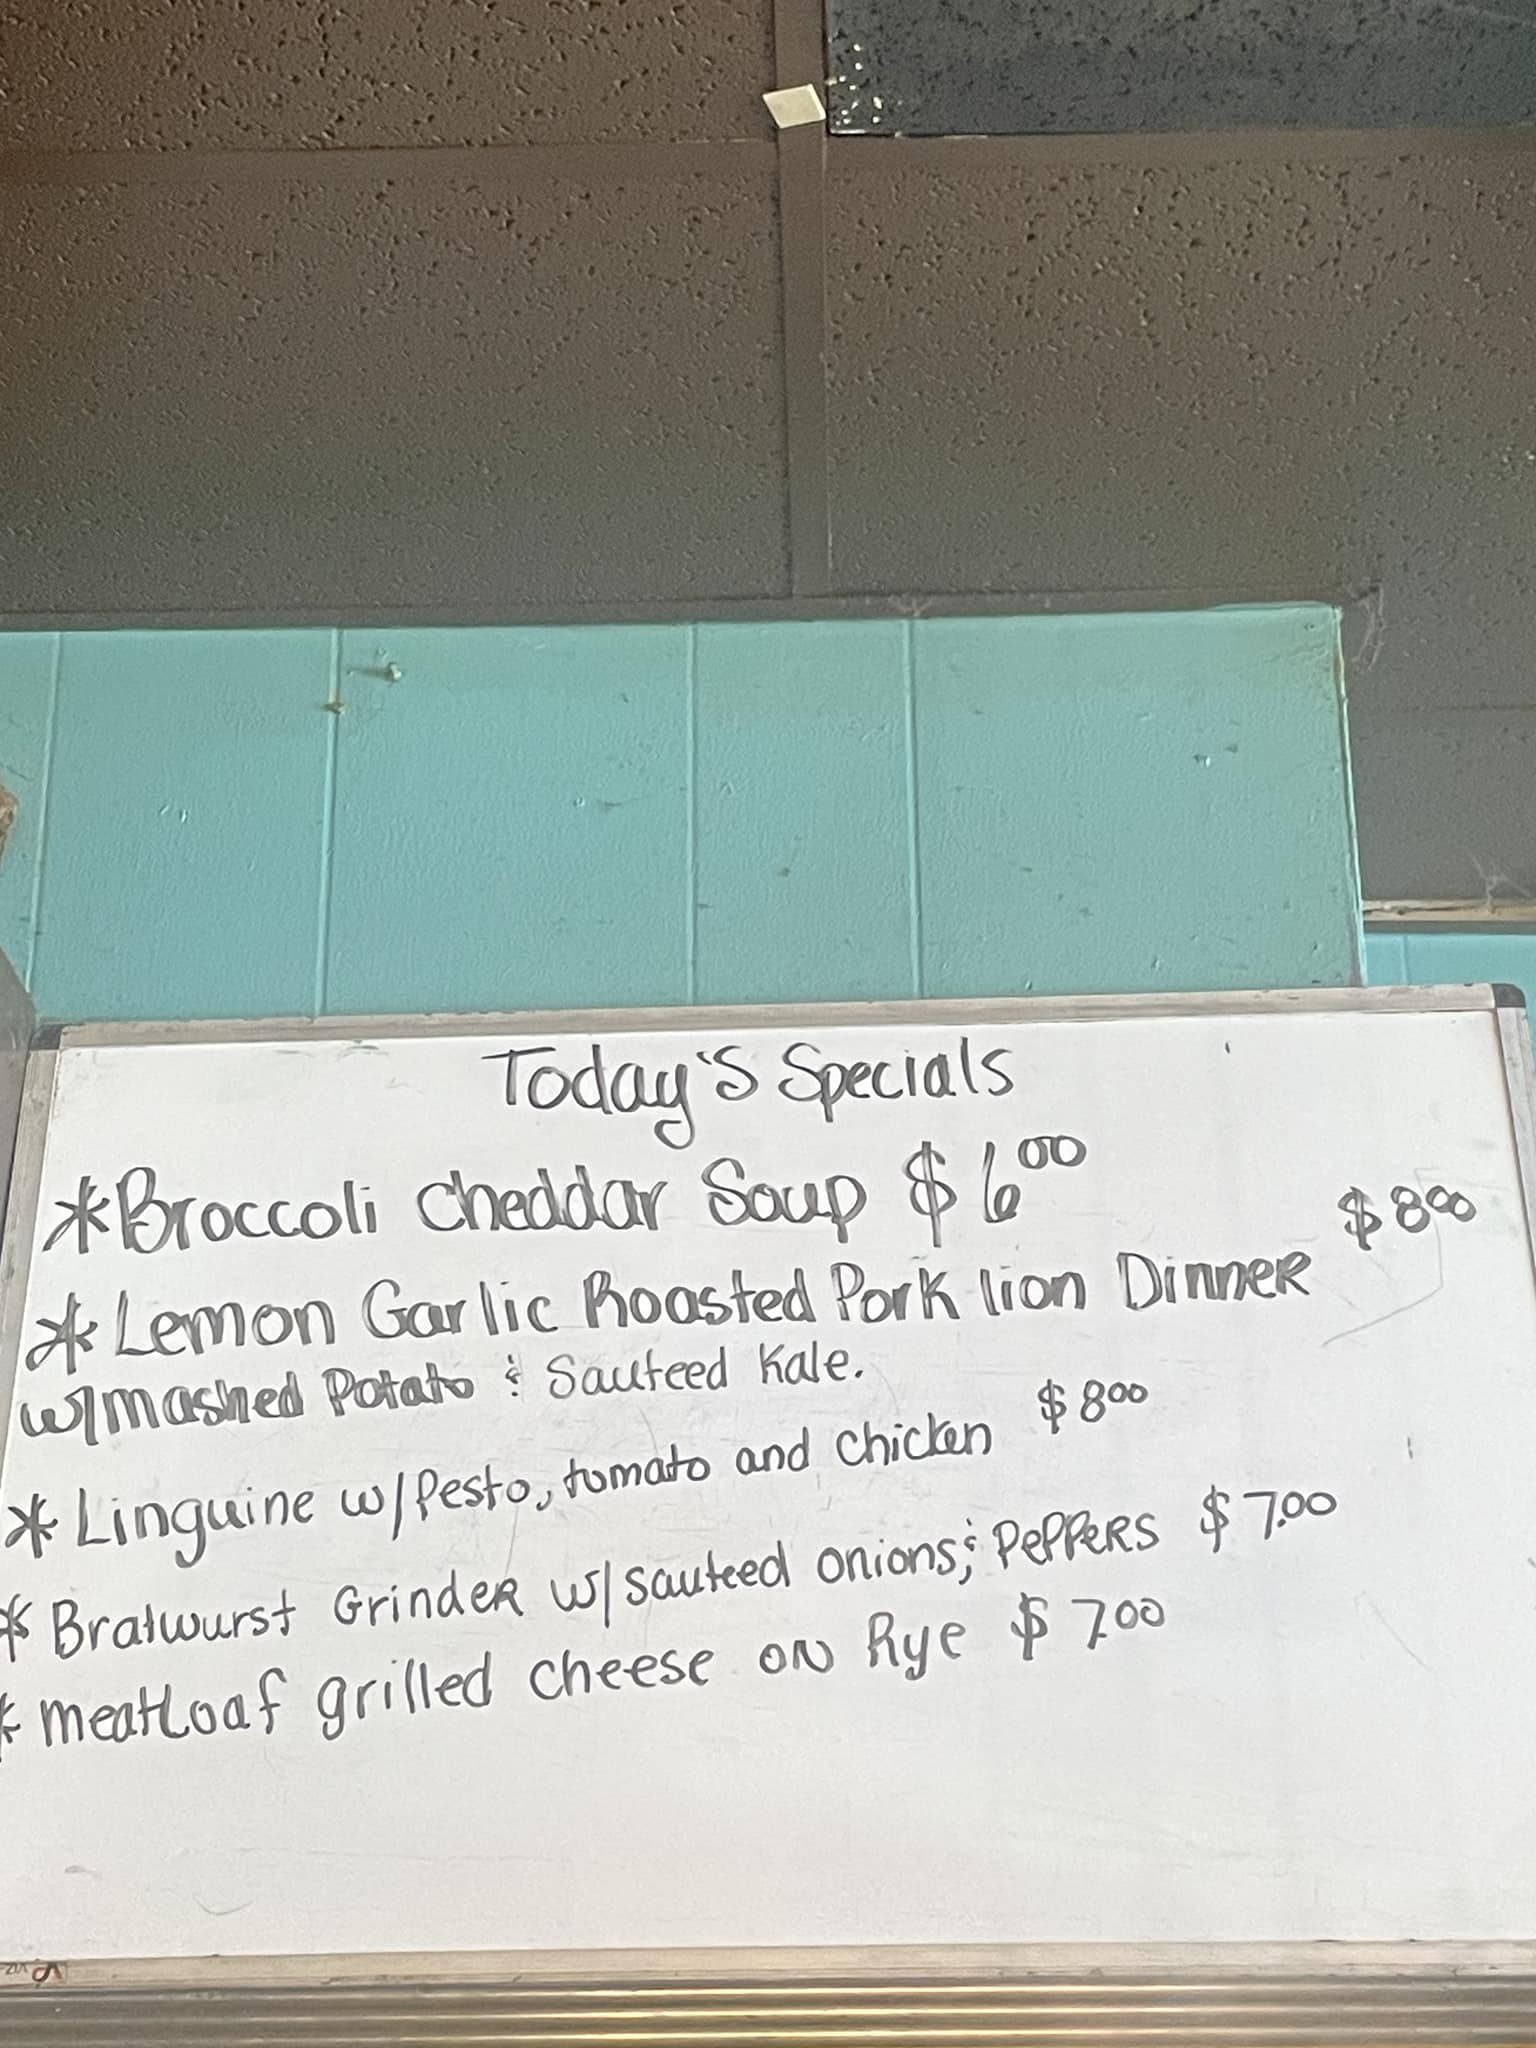 Today's Specials
*Broccoli Cheddar Soup $6.00
*Lemon Garlic Roasted Pork lion Dinner $8.00
w/mashed Potato & Sauteed Kale.
*Linguine w/Pesto, tomato and chicken $8.00
*Bratwurst Grinder w/sauteed onions, & Peppers $7.00
*meatloaf grilled cheese on Rye $7.00